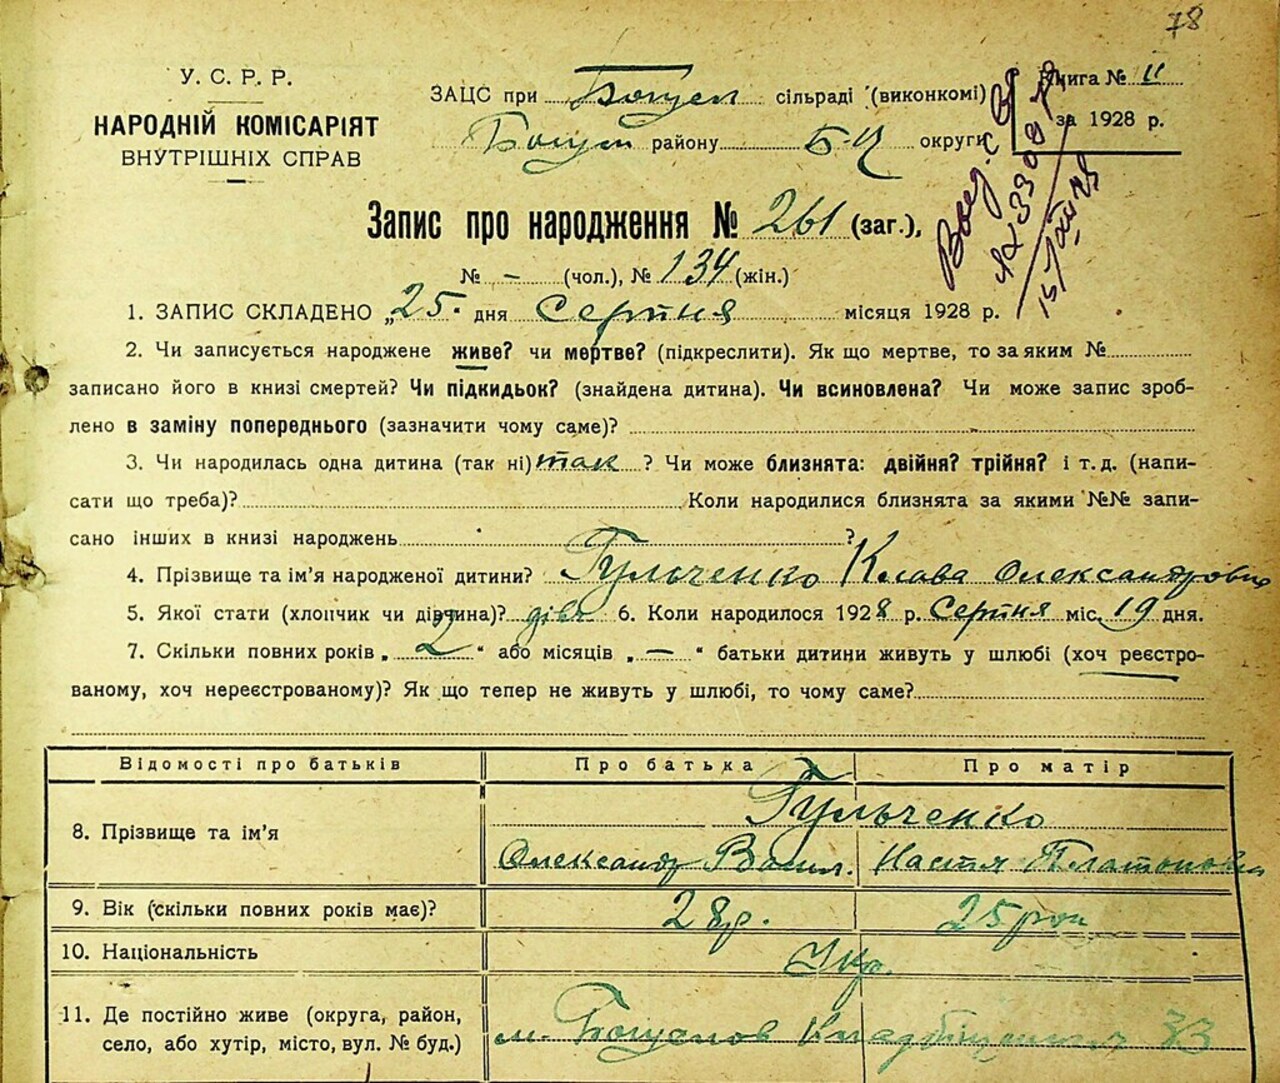 78
У. С. Р. Р.
НАРОДНІЙ КОМІСАРІЯТ
ВНУТРІШНІХ СПРАВ
ЗАЦС при Богусл сільраді (виконкомі)
Богусл району Б-Ц округи
Книга № 11
за 1928 р.
Запис про народження № 261 (заг.),
№ – (чол.), № 134 (жін.)
1. ЗАПИС СКЛАДЕНО „25" дня Серпня місяця 1928 р.
2. Чи записується народжене живе? чи мертве? (підкреслити). Як що мертве, то за яким №
записано його в книзі смертей? Чи підкидьок? (знайдена дитина). Чи всиновлена? Чи може запис зроб-
лено в заміну попереднього (зазначити чому саме)?
3. Чи народилась одна дитина (так ні) так ? Чи може близнята: двійня? трійня? і т. д. (напи-
сати що треба)? Коли народилися близнята за якими №№ запи-
сано інших в книзі народжень ?
4. Прізвище та ім'я народженої дитини? Гульченко Клава Олександровна
5. Якої стати (хлопчик чи дівчина)? дівч 6. Коли народилося 1928 р. Серпня міс. 19 дня.
7. Скільки повних років „ 2 " або місяців „ — " батьки дитини живуть у шлюбі (хоч реєстро-
ваному, хоч нереєстрованому)? Як що тепер не живуть у шлюбі, то чому саме?
Відомості про батьків Про батька Про матір
8. Прізвище та ім'я Гульченко
Олександр Васил. Настя Платоновна
9. Вік (скільки повних років має)? 28 р. 25 рок
10. Національність Укр.
11. Де постійно живе (округа, район,
село, або хутір, місто, вул. № буд.) м. Богуслов 33